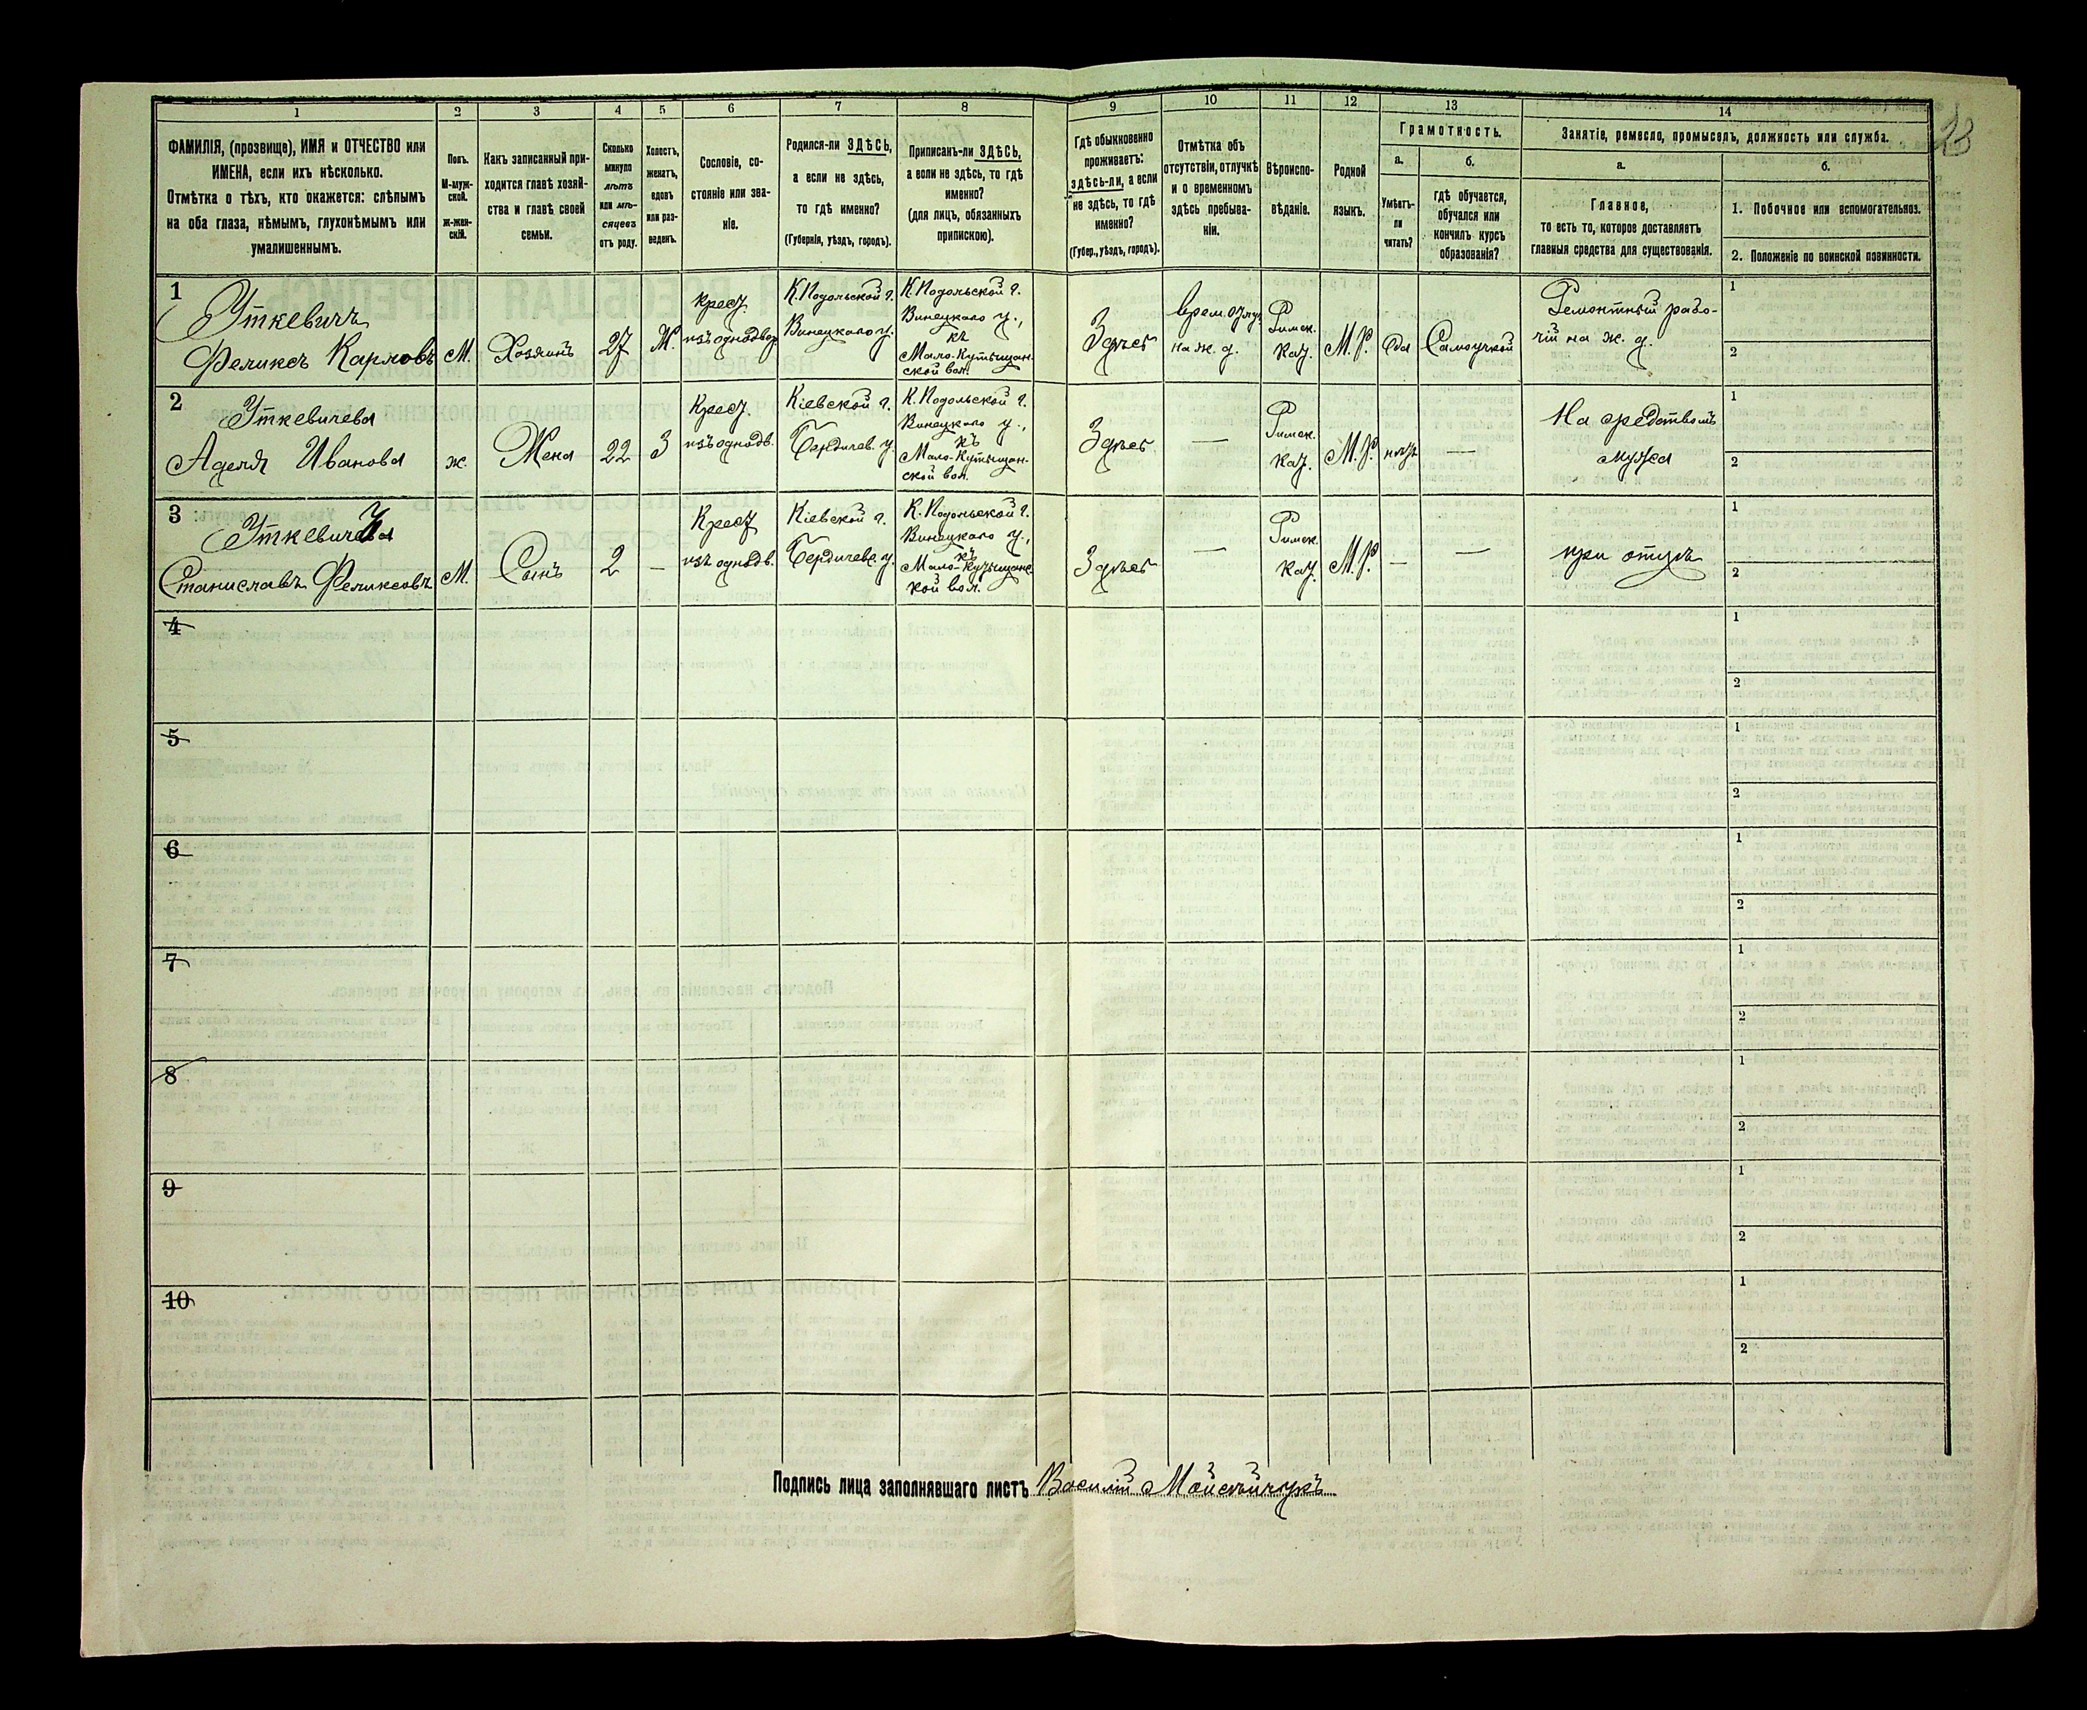 1 2 3 4 5 6 7 8 9 10 11 12 13 14
ФАМИЛІЯ, (прозвище), ИМЯ и ОТЧЕСТВО или
ИМЕНА, если ихъ нѣсколько.
Отмѣтка о тѣхъ, кто окажется: слѣпымъ
на оба глаза, нѣмымъ, глухонѣмымъ или
умалишеннымъ.
Полъ.
М-муж-
ской.
ж-жен-
скій.
Какъ записанный при-
ходится главѣ хозяй-
ства и главѣ своей
семьи.
Сколько
минуло
лѣтъ
или мѣ-
сяцевъ
отъ роду.
Холостъ,
женатъ,
вдовъ
или раз-
веденъ.
Сословіе, со-
стояніе или зва-
ніе.
Родился-ли ЗДѢСЬ,
а если не здѣсь,
то гдѣ именно?
(Губернія, уѣздъ, городъ).
Приписанъ-ли ЗДѢСЬ,
а если не здѣсь, то гдѣ
именно?
(для лицъ, обязанныхъ
припискою).
Гдѣ обыкновенно
проживаетъ:
здѣсь-ли, а если
не здѣсь, то гдѣ
именно?
(Губер., уѣздъ, городъ).
Отмѣтка объ
отсутствіи, отлучкѣ
и о временномъ
здѣсь пребыва-
ніи.
Вѣроиспо-
вѣданіе.
Родной
языкъ.
Грамотность.
а.
Умѣетъ-
ли
читать?
б.
гдѣ обучается,
обучался или
кончилъ курсъ
образованія?
Занятіе, ремесло, промыселъ, должность или служба.
а.
Главное,
то есть то, которое доставляетъ
главныя средства для существованія.
б.
1. Побочное или вспомогательноe.
2. Положеніе по воинской повинности.
1
Уткевичъ
Феликсъ Карловъ
М.
Хозяинъ
27
Ж.
крест.
изъ однодвор.
К. Подольской г.
Винецкого у.
К. Подольской г.
Винецкого у.,
къ
Мало-Кутыщан-
ской вол.
Здѣсь
врем. отлуч.
на ж. д.
Римск.
кат.
М.Р.
Да
Самоучкой
Ремонтный рабо-
чій на ж. д.
1
2
2
Уткевичева
Аделя Иванова
ж.
Жена
22
З
Крест.
изъ однодв.
Кіевской г.
Бердичев. у.
К. Подольской г.
Винецкого у.,
къ
Мало-Кутыщан-
ской вол.
Здѣсь
—
Римск.
кат.
М.Р.
нѣтъ
—
На средствахъ
мужа
1
2
3
Станиславъ Феликсовъ
М.
Сынъ
2
—
Крест
изъ однодв.
Кіевской г.
Бердичевс. у.
К. Подольской г.
Винецкого у.,
къ
Мало-Кутыщанс-
кой вол.
Здѣсь
—
Римск
кат.
М.Р.
—
—
при отцѣ
1
2
4
1
2
5
1
2
6
1
2
7
1
2
8
1
2
9
1
2
10
1
2
Подпись лица заполнявшаго листъ Василій